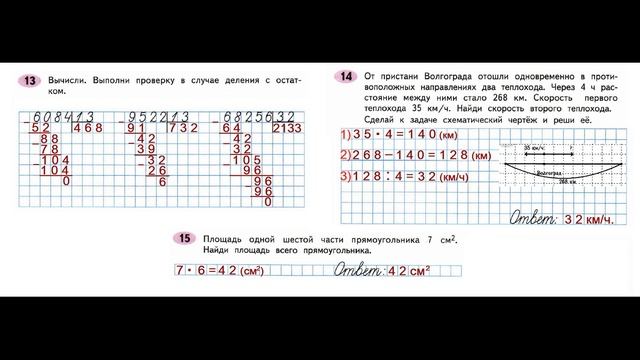 13 Вычисли. Выполни проверку в случае деления с остат-
ком.
6084 13   9522 13   68256 32
52   468   91   732   64   2133
88   42   42
78   39   32
104   32   105
104   26   96
0   6   96
96
0
14 От пристани Волгограда отошли одновременно в проти-
воположных направлениях два теплохода. Через 4 ч рас-
стояние между ними стало 268 км. Скорость первого
теплохода 35 км/ч. Найди скорость второго теплохода.
Сделай к задаче схематический чертёж и реши её.
1) 35 · 4 = 140 (км)
2) 268 − 140 = 128 (км)
3) 128 : 4 = 32 (км/ч)
35 км/ч   ?
Волгоград
268 км
Ответ: 32 км/ч.
15 Площадь одной шестой части прямоугольника 7 см².
Найди площадь всего прямоугольника.
7 · 6 = 42 (см²)   Ответ: 42 см²